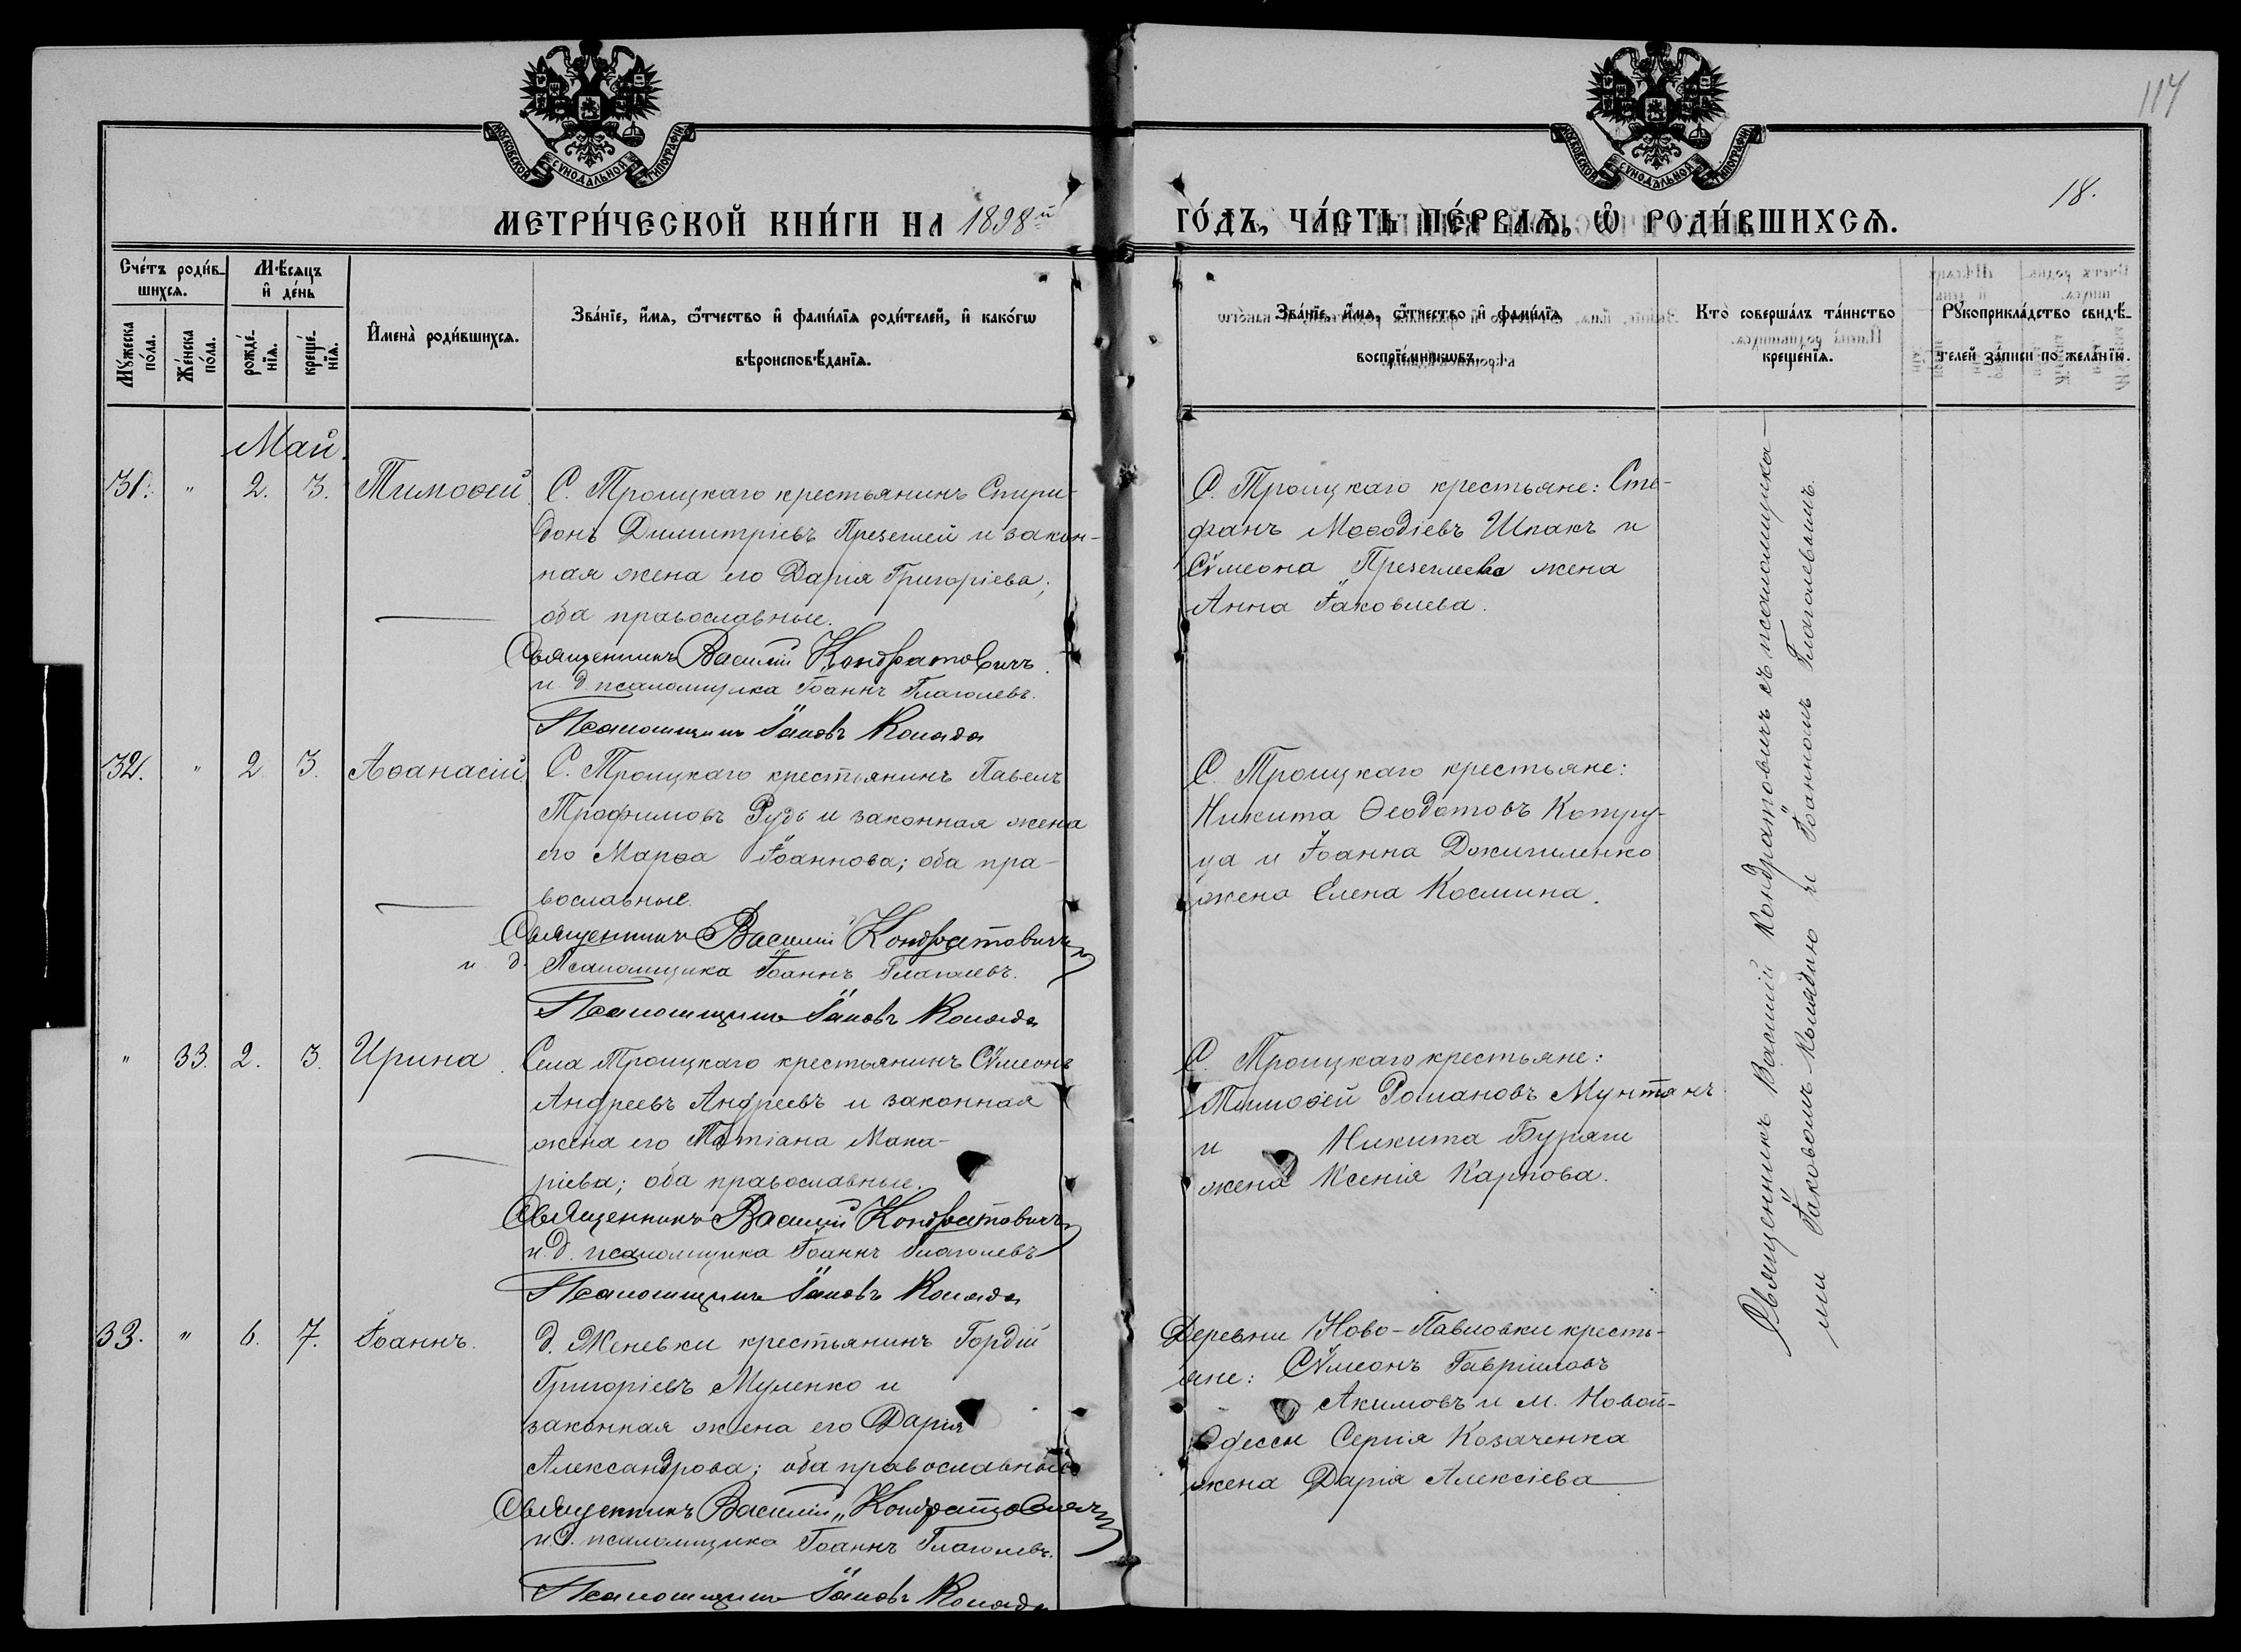 117
МОСКОВСКОЙ СУНОДАЛЬНОЙ ТИПОГРАФІИ
МОСКОВСКОЙ СУНОДАЛЬНОЙ ТИПОГРАФІИ
18.
МЕТРИ́ЧЕСКОЙ КНИ́ГИ НА 1898й
ГО́ДЪ, ЧА́СТЬ ПЕ́РВАѦ, Ѽ РОДИ́ВШИХСѦ.
Сче́тъ роди́вшихсѧ.
Мꙋжеска по́ла.
Же́нска по́ла.
Мѣ́сяцъ и҆ де́нь
рожде́нїѧ.
креще́нїѧ.
И҆мена̀ роди́вшихсѧ.
Зва́нїе, и҆́мѧ, ѻ҆́тчество и҆ фами́лїѧ роди́телей, и҆ како́гѡ
вѣроисповѣ́данїѧ.
Зва́нїе, и҆́мѧ, ѻ҆́тчество и҆ фами́лїѧ
воспрїе́мникѡвъ.
Кто̀ соверша́лъ та́инство
креще́нїѧ.
Рꙋкоприкла́дство свидѣ́-
телей за́писи по жела́нїю.
Май.
31. " 2. 3. Тимоѳей
С. Троицкаго крестьянинъ Спири-
донъ Димитріевъ и закон-
ная жена его Дарія Григоріева;
оба православные.
Священникъ Василій Кондратовичъ
и. д. псаломщика Іоаннъ Глаголевъ.
Псаломщикъ Іаковъ Коляда
С. Троицкаго крестьяне: Сте-
фанъ Меѳодіевъ Шпакъ и
Сѵмеона жена
Анна Іаковлева.
32. " 2 3. Аѳанасій
С. Троицкаго крестьянинъ Павелъ
Трофимовъ Рудь и законная жена
его Марѳа Іоаннова; оба пра-
вославные.
Священникъ Василій Кондратовичъ
и д. Псаломщика Іоаннъ Глаголевъ.
Псаломщикъ Іаковъ Коляда
С. Троицкаго крестьяне:
Никита Ѳеодотовъ Котру-
ца и Іоанна
жена Елена Космина.
" 33. 2. 3. Ирина.
Села Троицкаго крестьянинъ Сѵмеонъ
Андреевъ Андреевъ и законная
жена его Татіана Мака-
ріева; оба православные.
Священникъ Василій Кондратовичъ
и. д. псаломщика Іоаннъ Глаголевъ
Псаломщикъ Іаковъ Коляда
С. Троицкаго крестьяне:
Тимоѳей Романовъ Мунтянъ
и Никита Буряги
жена Ксенія Карпова.
33. " 6. 7. Іоаннъ.
д. Женевки крестьянинъ Гордій
Григоріевъ Муленко и
законная жена его Дарія
Александрова; оба православные
Священникъ Василій Кондратовичъ
и. д. псаломщика Іоаннъ Глаголевъ.
Псаломщикъ Іаковъ Коляда
Деревни Ново-Павловки кресть-
яне: Сѵмеонъ Гавріиловъ
Акимовъ и м. Новой-
Одессы Сергія Козаченка
жена Дарія Алексіева
Священникъ Василій Кондратовичъ съ псаломщика-
ми Іаковомъ Колядою и Іоанномъ Глаголевымъ.